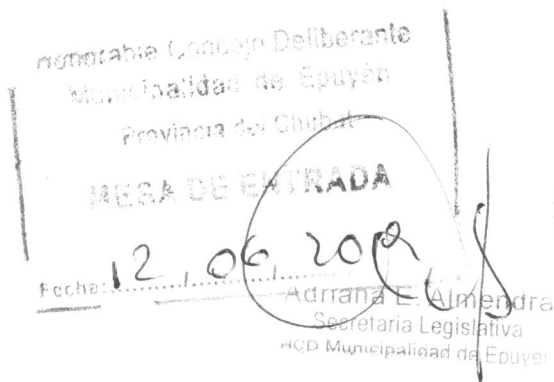 Honorable Concejo Deliberante
Municipalidad de Epuyén
Provincia del Chubut
MESA DE ENTRADA
Fecha: 12, 06, 20
Adriana E. Almendra
Secretaria Legislativa
HCD Municipalidad de Epuyén